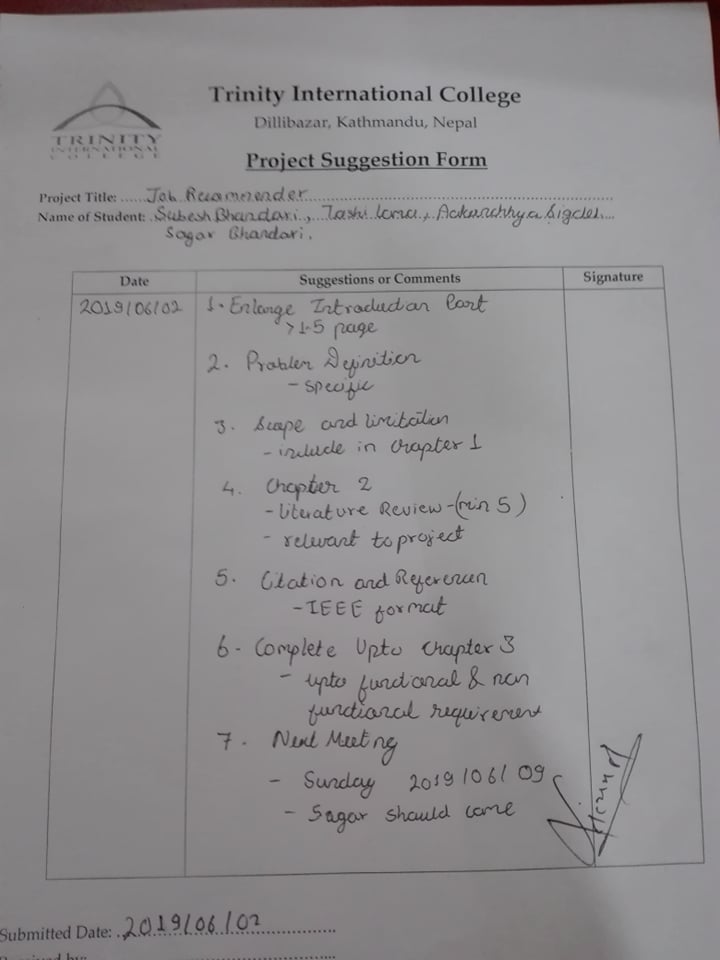 TRINITY
INTERNATIONAL
COLLEGE
Trinity International College
Dillibazar, Kathmandu, Nepal
Project Suggestion Form
Project Title: ......Job Recommender..........
Name of Student: .Subesh Bhandari., Tashi lama., Aakanchhya Sigdel....
Sagar Bhandari.
Date Suggestions or Comments Signature
2019/06/02 1. Enlarge Introduction Part
>1.5 page
2. Problem Definition
- specific
3. Scope and limitation
- include in chapter 1
4. Chapter 2
- Literature Review - (min 5)
- relevant to project
5. Citation and Referencen
- IEEE format
6 - Complete Upto Chapter 3
- upto functional & non
functional requirement
7. Next Meeting
- Sunday 2019/06/09
- Sagar should come
Submitted Date: .2019/06/02...............
Received by: